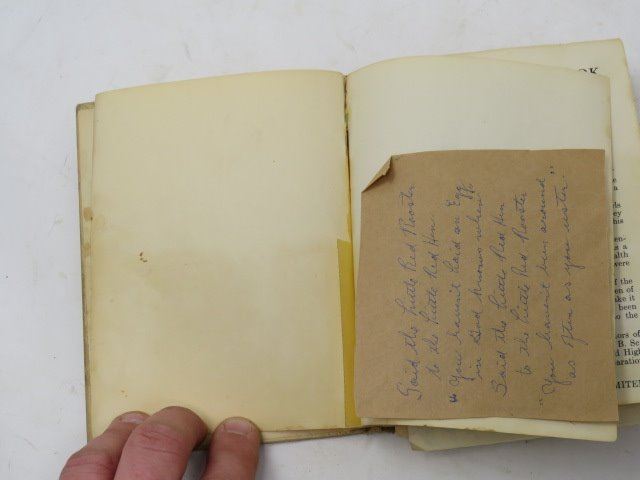 Said the Little Red Rooster
to the Little Red Hen
"You havent laid an Egg
in God knows when"
Said the Little Red Hen
to the Little Red Rooster
"You havent been around
as often as you uster."
OK
is
ds
ey
his
en-
s a
alth
were
f the
en of
ake it
been
o the
ors of
B. Se
d High
aration
MITED